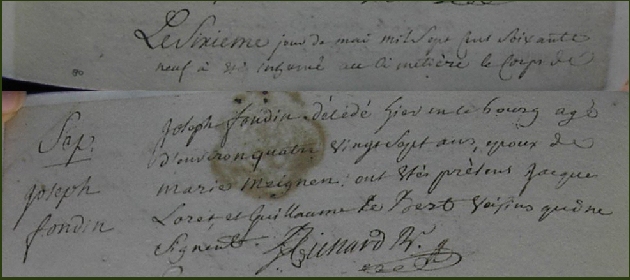 Le Sixieme jour de mai mil Sept cent Soixante
neuf à été inhumé au Cimetière le Corps de
Joseph fondin décédé hier en le bourg agé
d'environ quatre Vingt Sept ans, epoux de
marie meignen; ont étés présens Jacque
Loret et Guillaume Voisins qui ne
Signent.
Sep.
joseph
fondin